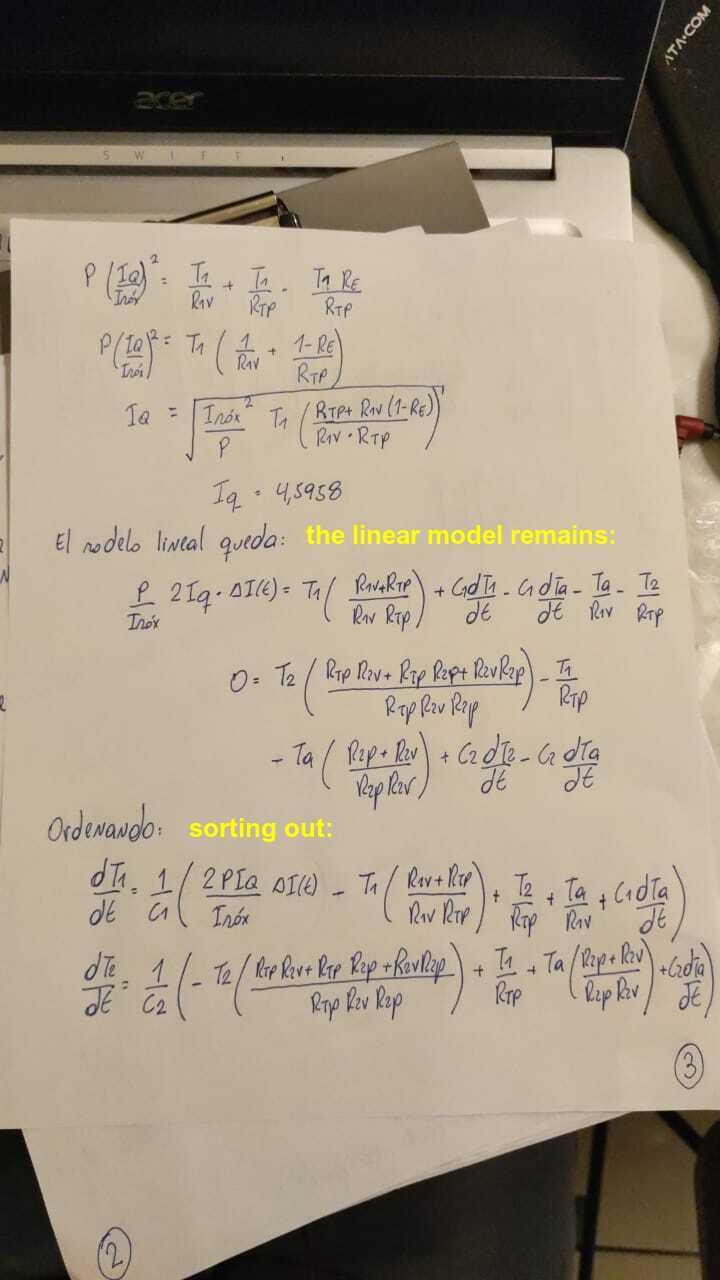 ATA-COM
acer
SWIFT
P (IQ/Imáx)² = T1/R1V + T1/RTP - T1 RE/RTP
P (IQ/Imáx)² = T1 (1/R1V + (1-RE)/RTP)
IQ = √(Imáx²/P T1 ((RTP + R1V (1-RE))/(R1V · RTP)))
Iq = 4,5958
El modelo lineal queda: the linear model remains:
P/Imáx 2Iq · ΔI(t) = T1 ((R1V+RTP)/(R1V RTP)) + C1 dT1/dt - C1 dTa/dt - Ta/R1V - T2/RTP
0 = T2 ((RTP R2V + RTP R2P + R2V R2P)/(RTP R2V R2P)) - T1/RTP
- Ta ((R2P + R2V)/(R2P R2V)) + C2 dT2/dt - C2 dTa/dt
Ordenando: sorting out:
dT1/dt = 1/C1 (2PIQ/Imáx ΔI(t) - T1 ((R1V + RTP)/(R1V RTP)) + T2/RTP + Ta/R1V + C1 dTa/dt)
dT2/dt = 1/C2 (- T2 ((RTP R2V + RTP R2P + R2V R2P)/(RTP R2V R2P)) + T1/RTP + Ta ((R2P + R2V)/(R2P R2V)) + C2 dTa/dt)
3
2